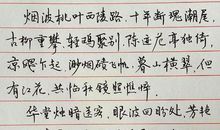 烟波桃叶西陵路、十年断魂潮尾。
古柳重攀、轻鸥聚别、陈迹危亭独倚。
凉飔乍起、渺烟碛飞帆、暮山横翠。但
有江花、共临秋镜照憔悴。
华堂烛暗送客、眼波回盼处、芳艳